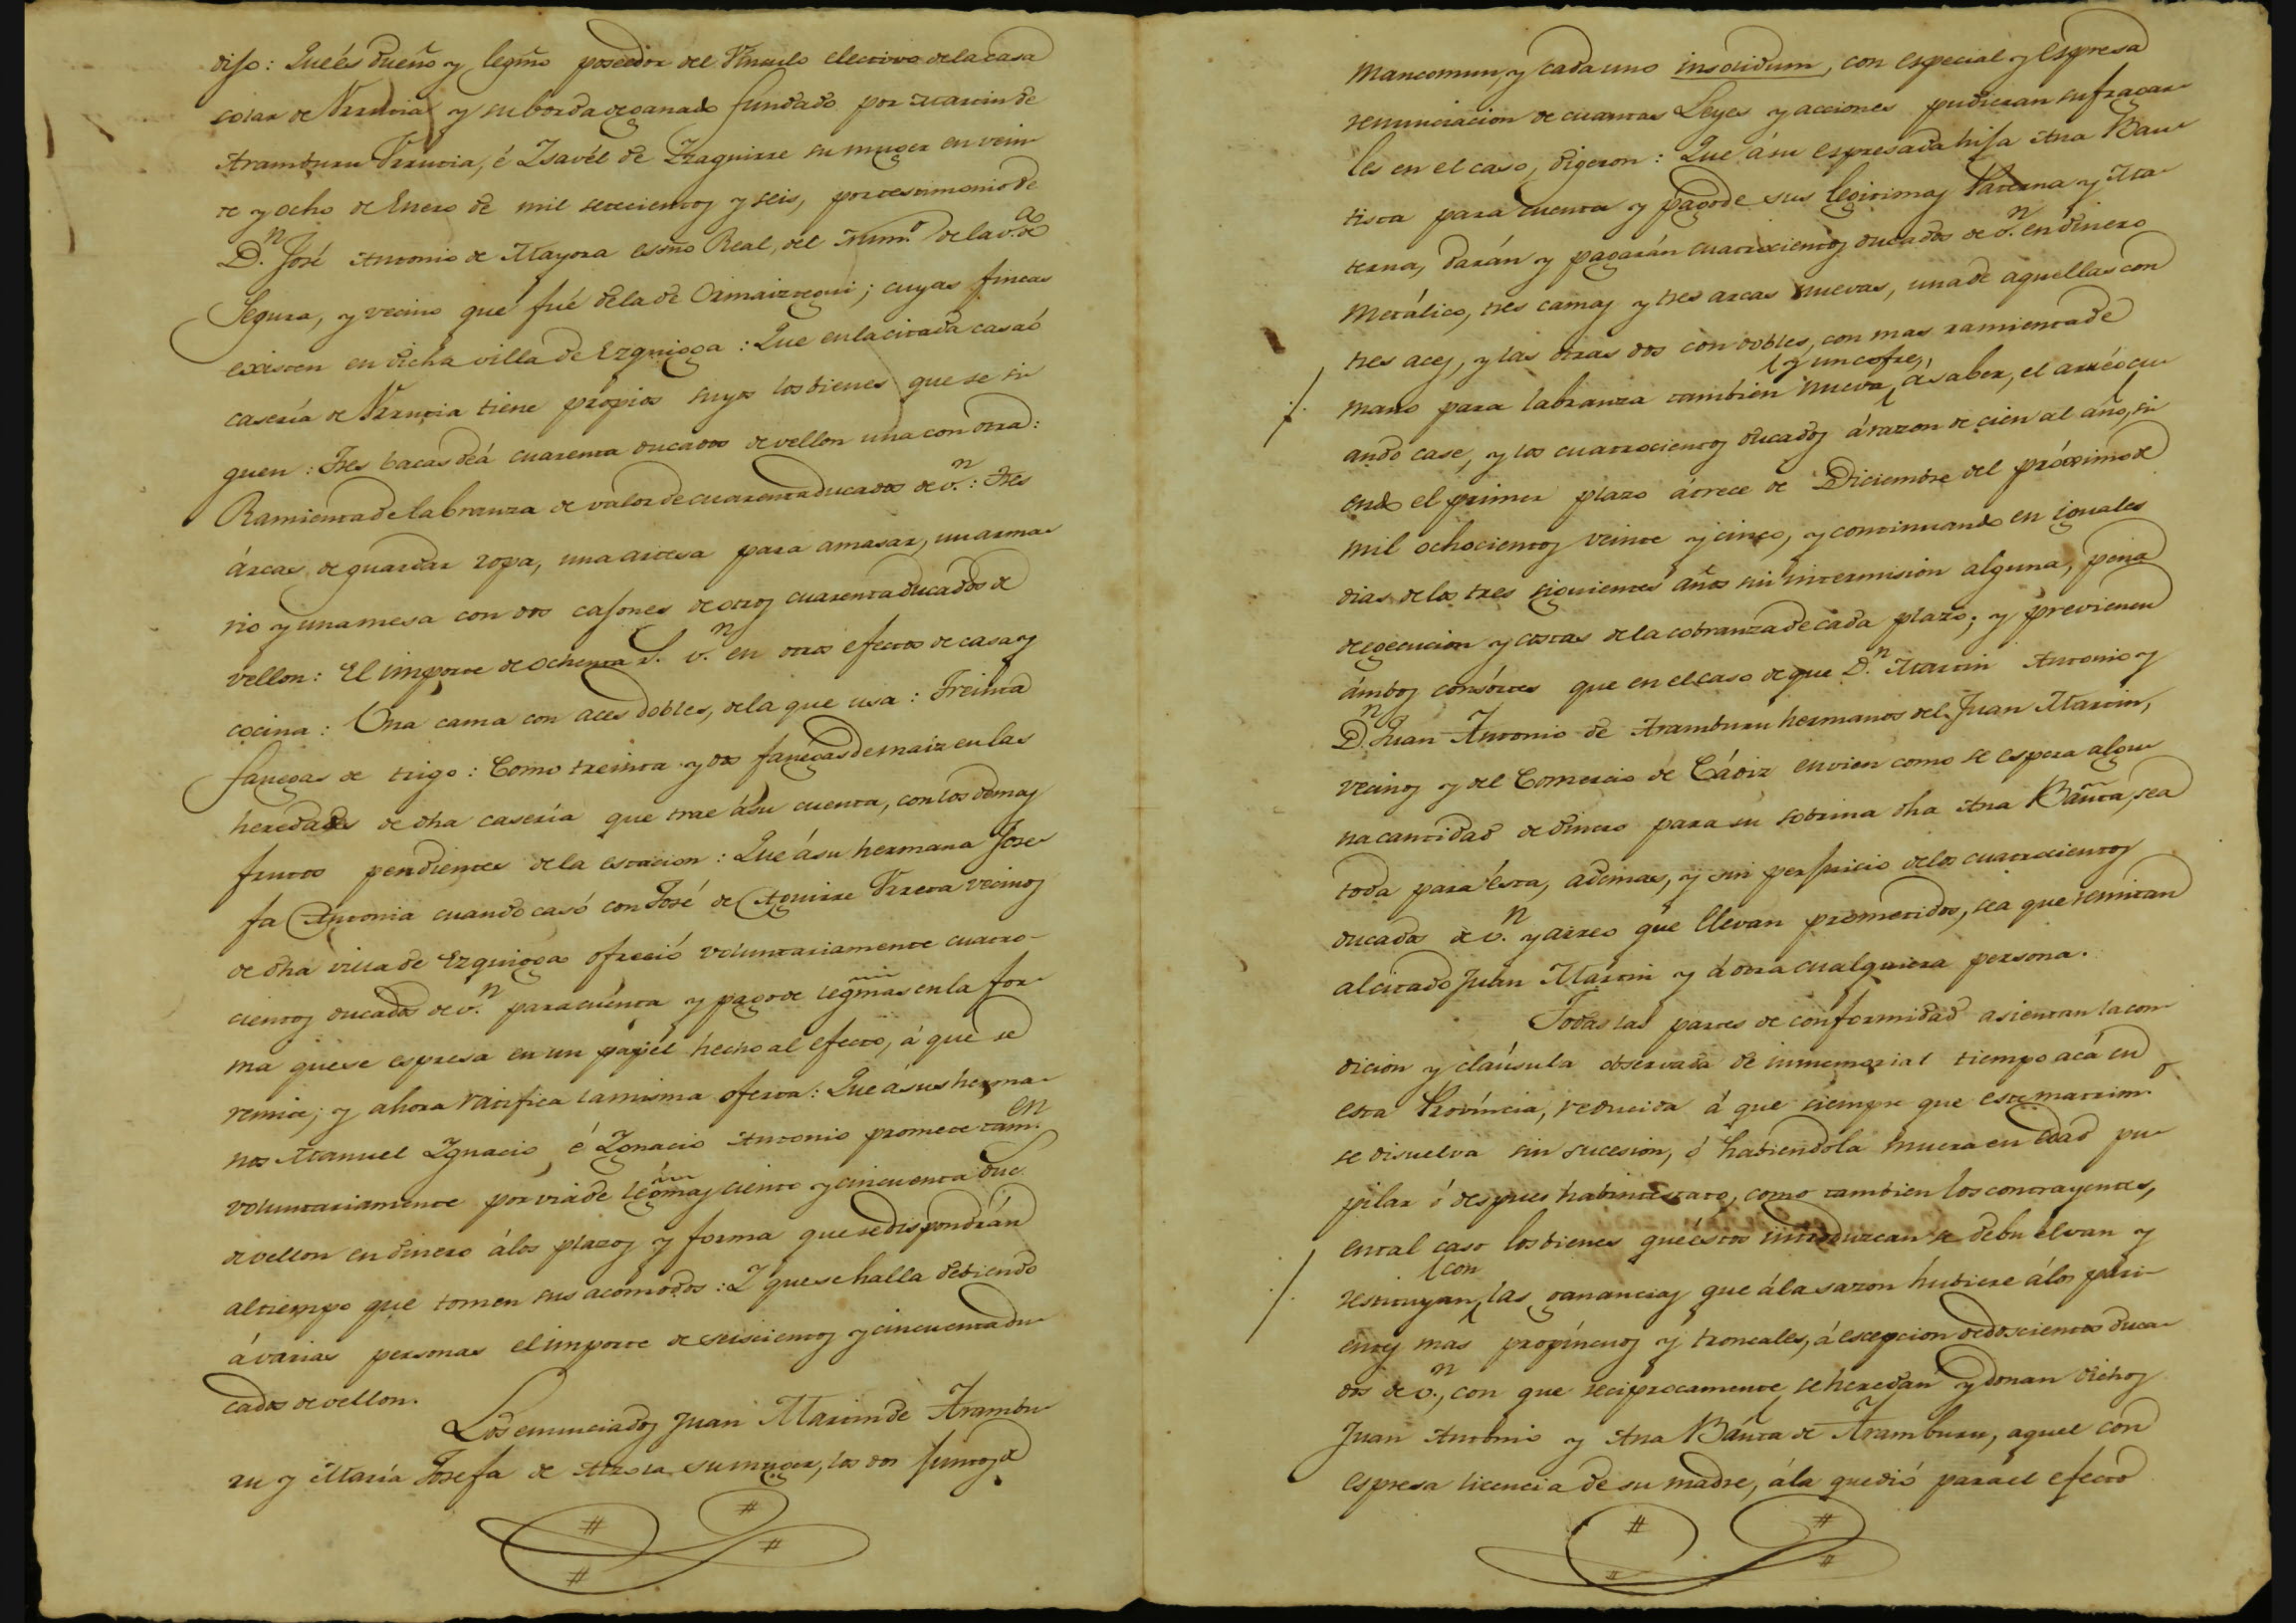 dijo: Que és dueño y legmo poseedor del Vinculo electivo de la casa
solar de Urrutia y su borda de ganado fundado por Martin de
Aramburu Urrutia, é Ysavél de Yzaguirre su muger en vein
te y ocho de Enero de mil setecientos y seis, por testimonio de
D.n José Antonio de Mayora esno Real, del Num.o de la v.a de
Segura, y vecino que fué de la de Ormaiztegui; cuyas fincas
existen en dicha villa de Ezquioga: Que en la citada casa ó
casería de Urrutia tiene propios suyos los bienes que se si
guen: Tres bacas de á cuarenta ducados de vellon una con otra:
Ramienta de labranza de valor de cuarenta ducados de v.n: Tres
árcas de guardar ropa, una artesa para amasar, un arma
rio y una mesa con dos cajones de otros cuarenta ducados de
vellon: El importe de ochenta d.s v.n en otros efectos de casa y
cocina: Una cama con aces dobles, de la que usa: Treinta
fanegas de trigo: Como treinta y dos fanegas de maiz en las
heredades de dha casería que trae á su cuenta, con los demas
frutos pendientes de la estacion: Que á su hermana Jose
fa Antonia cuando casó con José de Aguirre Urreta vecinos
de dha villa de Ezquioga ofreció voluntariamente cuatro-
cientos ducados de v.n para cuenta y pago de legmas en la for
ma que se espresa en un papél hecho al efecto, á que se
remite; y ahora ratifica la misma oferta: Que á sus herma-
nos Manuel Ygnacio, é Ygnacio Antonio promete tam.en
voluntariamente por via de legmas ciento y cincuenta duc.s
de vellon en dinero á los plazos y forma que se dispondrán
al tiempo que tomen sus acomodos: Y que se halla debiendo
á varias personas el importe de seiscientos y cincuenta du
cados de vellon.
Los enunciados Juan Martin de Arambu
ru y María Josefa de Arzola su muger, los dos juntos de
mancomun, y cada uno insolidum, con especial y espresa
renunciacion de cuantas Leyes y acciones pudieran sufragar
les en el caso, digeron: Que á su espresada hija Ana Bau
tista para cuenta y pago de sus legitimas Paterna y Ma
terna, darán y pagarán cuatrocientos ducados de v.n en dinero
metálico, tres camas y tres arcas nuevas, una de aquellas con
tres aces, y las otras dos con dobles, con mas ramienta de
y un cofre,
mano para labranza tambien nueva, á saber, el arréo cu
ando case, y los cuatrocientos ducados á razon de cien al año, si
endo el primer plazo á trece de Diciembre del próximo de
mil ochocientos veinte y cinco, y continuando en iguales
dias de los tres siguientes años sin intermision alguna, pena
de egecucion y costas de la cobranza de cada plazo; y previenen
ámbos consórtes que en el caso de que D.n Martin Antonio y
D.n Juan Antonio de Aramburu hermanos del Juan Martin,
vecinos y del Comercio de Cádiz envien como se espera algu
na cantidad de dinero para su sobrina dha Ana Bauta, sea
toda para ésta, ademas, y sin perjuicio de los cuatrocientos
ducados de v.n y arreo que llevan prometidos, sea que remitan
al citado Juan Martin y á otra cualquiera persona.
Todas las partes de conformidad asientan la con
dicion y claúsula observada de inmemorial tiempo acá en
esta Província, reducida á que siempre que este matrim.o
se disuelva sin sucesion, ó habiendola muera en edad pu
pilar ó despues habintestato, como tambien los contrayentes,
en tal caso los bienes que éstos introduzcan se debuélvan y
con
restituyan, las ganancias que á la sazon hubiere á los pari-
entes mas propíncuos y troncales, á escepcion de doscientos duca
dos de v.n, con que reciprocamente se heredan y donan dichos
Juan Antonio y Ana Bauta de Aramburu, aquel con
espresa licencia de su madre, á la que dió para el efecto